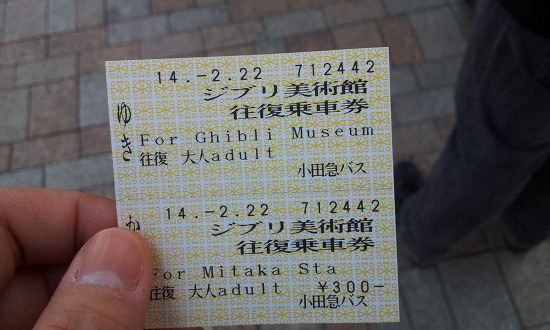 14.-2.22 712442
ジブリ美術館
往復乗車券
ゆき
For Ghibli Museum
往復 大人adult
小田急バス
14.-2.22 712442
ジブリ美術館
往復乗車券
か
For Mitaka Sta
往復 大人adult ¥300-
小田急バス